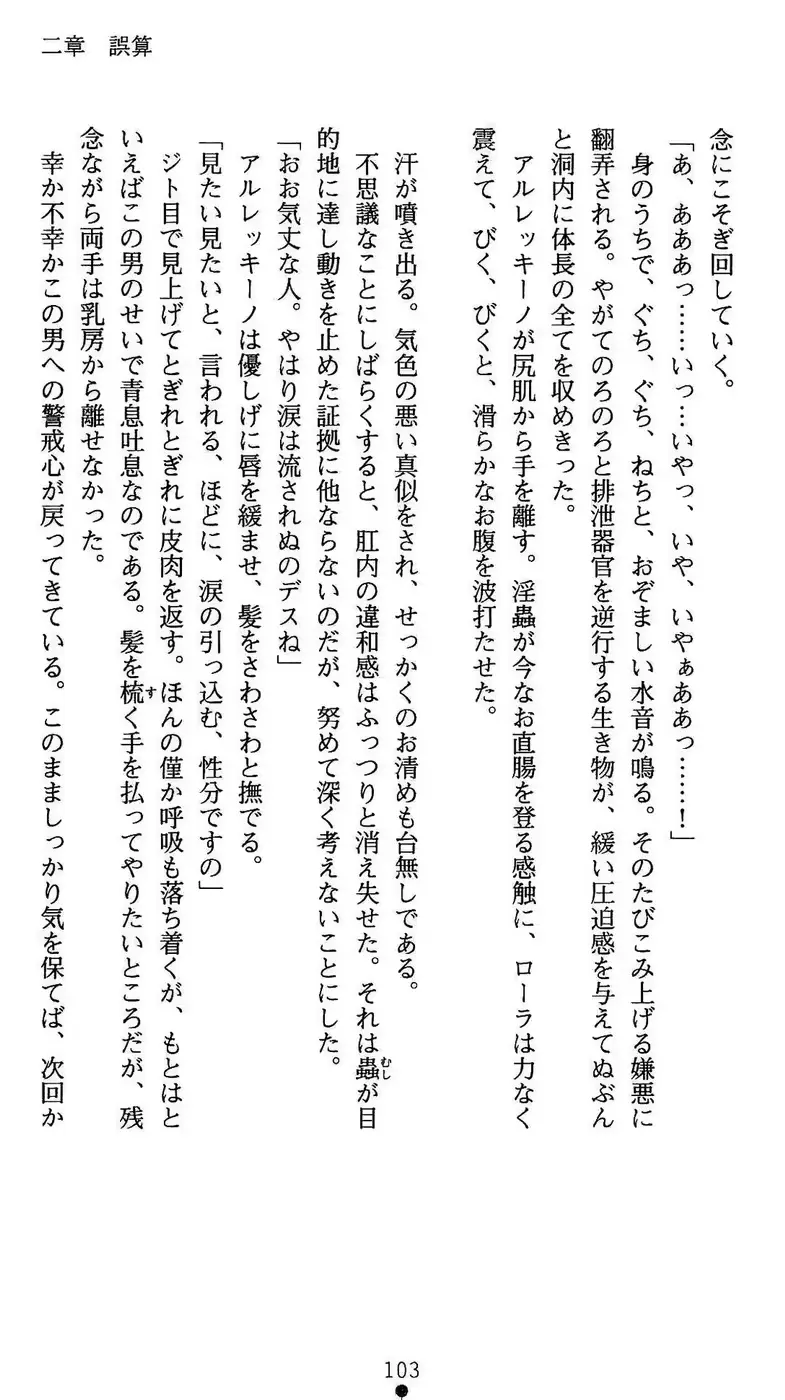 二章　誤算
念にこそぎ回していく。
「あ、あああっ……いっ…いやっ、いや、いやぁああっ……！」
身のうちで、ぐち、ぐち、ねちと、おぞましい水音が鳴る。そのたびこみ上げる嫌悪に
翻弄される。やがてのろのろと排泄器官を逆行する生き物が、緩い圧迫感を与えてぬぶん
と洞内に体長の全てを収めきった。
アルレッキーノが尻肌から手を離す。淫蟲が今なお直腸を登る感触に、ローラは力なく
震えて、びく、びくと、滑らかなお腹を波打たせた。
汗が噴き出る。気色の悪い真似をされ、せっかくのお清めも台無しである。
不思議なことにしばらくすると、肛内の違和感はふっつりと消え失せた。それは蟲が目
的地に達し動きを止めた証拠に他ならないのだが、努めて深く考えないことにした。
「おお気丈な人。やはり涙は流されぬのデスね」
アルレッキーノは優しげに唇を緩ませ、髪をさわさわと撫でる。
「見たい見たいと、言われる、ほどに、涙の引っ込む、性分ですの」
ジト目で見上げてとぎれとぎれに皮肉を返す。ほんの僅か呼吸も落ち着くが、もとはと
いえばこの男のせいで青息吐息なのである。髪を梳く手を払ってやりたいところだが、残
念ながら両手は乳房から離せなかった。
幸か不幸かこの男への警戒心が戻ってきている。このまましっかり気を保てば、次回か
103